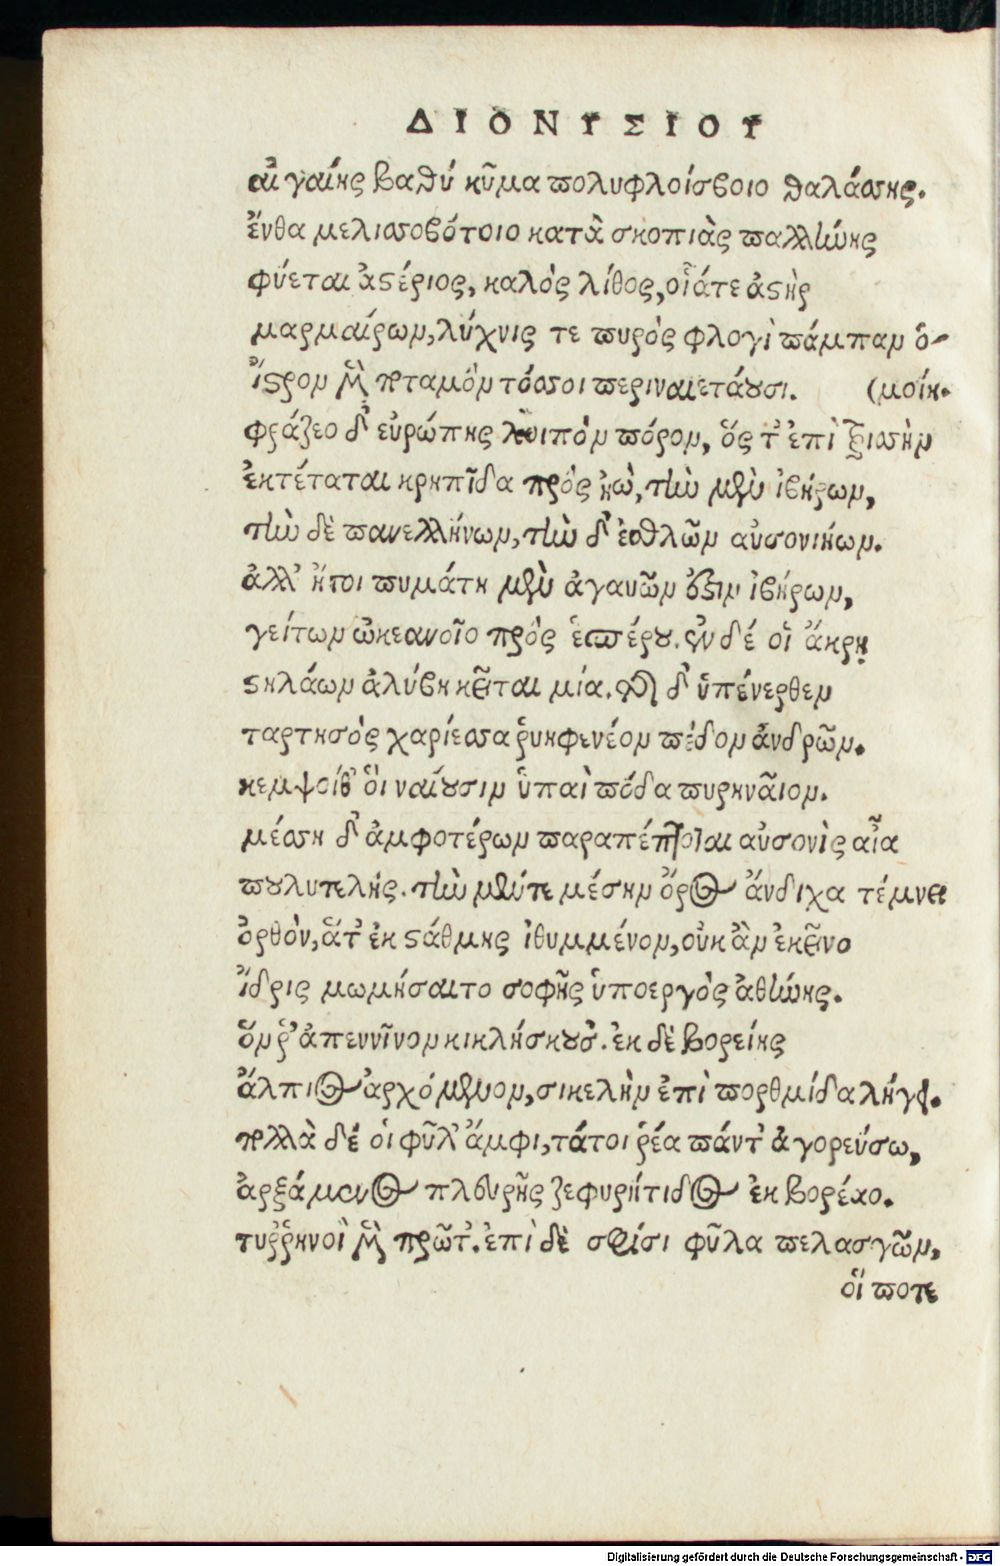 ΔΙΟΝΥΣΙΟΥ
αἰγαίης βαθὺ κῦμα πολυφλοίσβοιο θαλάσσης.
ἔνθα μελισσοβότοιο κατὰ σκοπιὰς παλλήνης
φύεται ἀστέριος, καλὸς λίθος, οἷάτε ἀστὴρ
μαρμαίρων, λύχνις τε πυρὸς φλογὶ πάμπαν ὁ-
ἴστρον μὲν ποταμὸν τόσσοι περιναιετάουσι. (μοίη.
φράζεο δ' εὐρώπης λοιπὸν πόρον, ὅς τ' ἐπὶ τρισσὴν
ἐκτέταται κρηπῖδα πρὸς ἠὼ, τὴν μὲν ἰβήρων,
τὴν δὲ πανελλήνων, τὴν δ' ἐσθλῶν αὐσονιήων.
ἀλλ' ἤτοι πυμάτη μὲν ἀγαυῶν ἐστὶν ἰβήρων,
γείτων ὠκεανοῖο πρὸς ἑσπέρου. ἐν δέ οἱ ἄκρη
στηλάων ἀλύβη κεῖται μία. τῇ δ' ὑπένερθεν
ταρτησὸς χαρίεσσα ῥυηφενέον πέδον ἀνδρῶν.
κεμψοίθ' οἳ ναίουσιν ὑπαὶ πόδα πυρηναῖον.
μέσση δ' ἀμφοτέρων παραπέπτοται αὐσονὶς αἶα
πουλυτελής. τὴν μέν τε μέσην ὄρος ἄνδιχα τέμνει
ὀρθὸν, ἅτ' ἐκ στάθμης ἰθυμμένον, οὐκ ἂν ἐκεῖνο
ἴδρις μωμήσαιτο σοφῆς ὑποεργὸς ἀθήνης.
ὅν ῥ' ἀπεννῖνον κικλήσκουσ'. ἐκ δὲ βορείης
ἄλπιος ἀρχόμενον, σικελὴν ἐπὶ πορθμίδα λήγει.
πολλὰ δέ οἱ φῦλ' ἄμφι, τάτοι ῥέα πάντ' ἀγορεύσω,
ἀρξάμενος πλευρῆς ζεφυρήτιδος ἐκ βορέαο.
τυῤῥηνοὶ μὲν πρῶτ'. ἐπὶ δὲ σφίσι φῦλα πελασγῶν,
οἵ ποτε
Digitalisierung gefördert durch die Deutsche Forschungsgemeinschaft - DFG